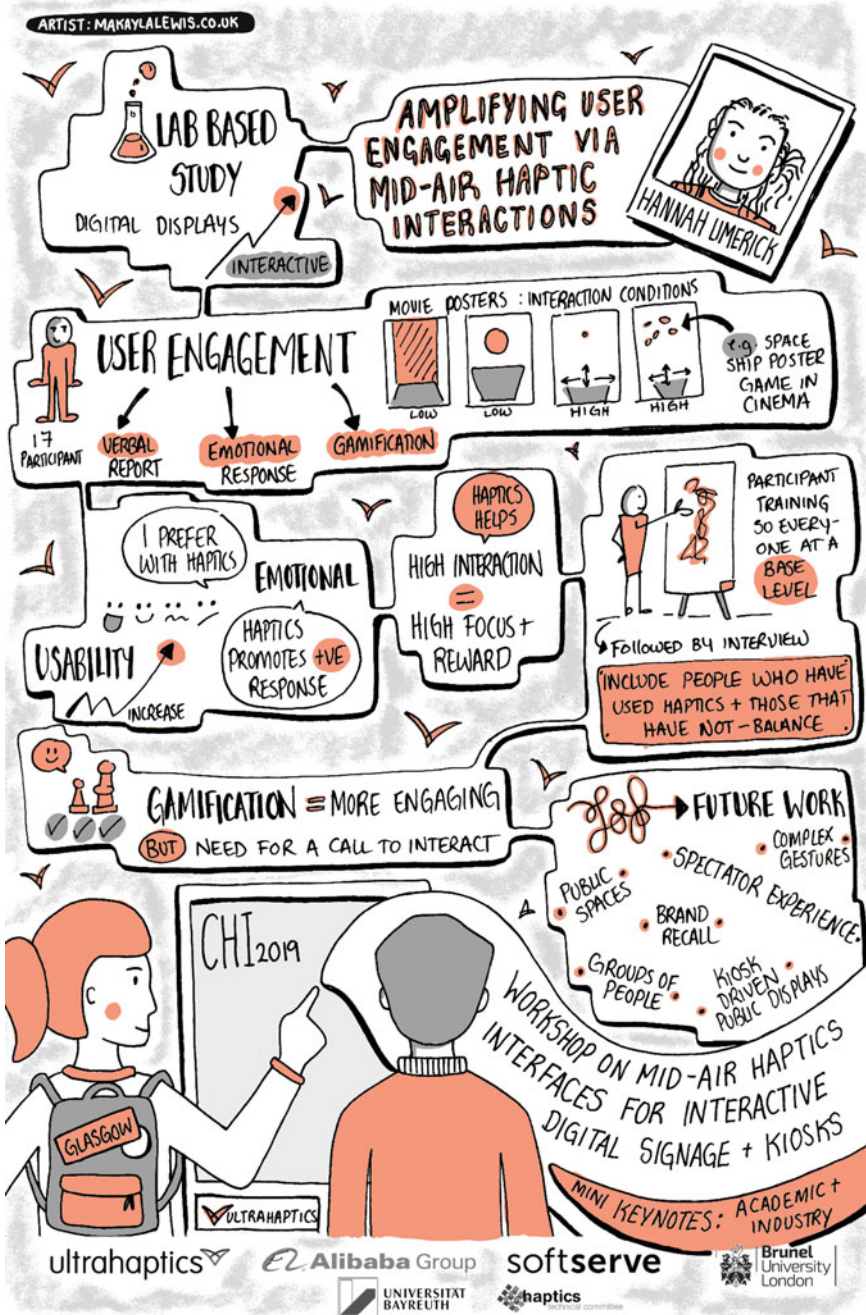 ARTIST: MAKAYLALEWIS.CO.UK
LAB BASED
STUDY
DIGITAL DISPLAYS
INTERACTIVE
AMPLIFYING USER
ENGAGEMENT VIA
MID-AIR HAPTIC
INTERACTIONS
HANNAH LIMERICK
USER ENGAGEMENT
17
PARTICIPANT
VERBAL
REPORT
EMOTIONAL
RESPONSE
GAMIFICATION
MOVIE POSTERS : INTERACTION CONDITIONS
LOW
LOW
HIGH
HIGH
e.g. SPACE
SHIP POSTER
GAME IN
CINEMA
I PREFER
WITH HAPTICS
EMOTIONAL
HAPTICS
PROMOTES +VE
RESPONSE
USABILITY
INCREASE
HAPTICS
HELPS
HIGH INTERACTION
=
HIGH FOCUS +
REWARD
PARTICIPANT
TRAINING
SO EVERY-
ONE AT A
BASE
LEVEL
FOLLOWED BY INTERVIEW
INCLUDE PEOPLE WHO HAVE
USED HAPTICS + THOSE THAT
HAVE NOT - BALANCE
GAMIFICATION = MORE ENGAGING
BUT NEED FOR A CALL TO INTERACT
FUTURE WORK
COMPLEX
GESTURES
SPECTATOR EXPERIENCE
PUBLIC
SPACES
BRAND
RECALL
GROUPS OF
PEOPLE
KIOSK
DRIVEN
PUBLIC DISPLAYS
CHI 2019
GLASGOW
ULTRAHAPTICS
WORKSHOP ON MID-AIR HAPTICS
INTERFACES FOR INTERACTIVE
DIGITAL SIGNAGE + KIOSKS
MINI KEYNOTES: ACADEMIC +
INDUSTRY
ultrahaptics
Alibaba Group
softserve
Brunel
University
London
UNIVERSITÄT
BAYREUTH
haptics
technical committee